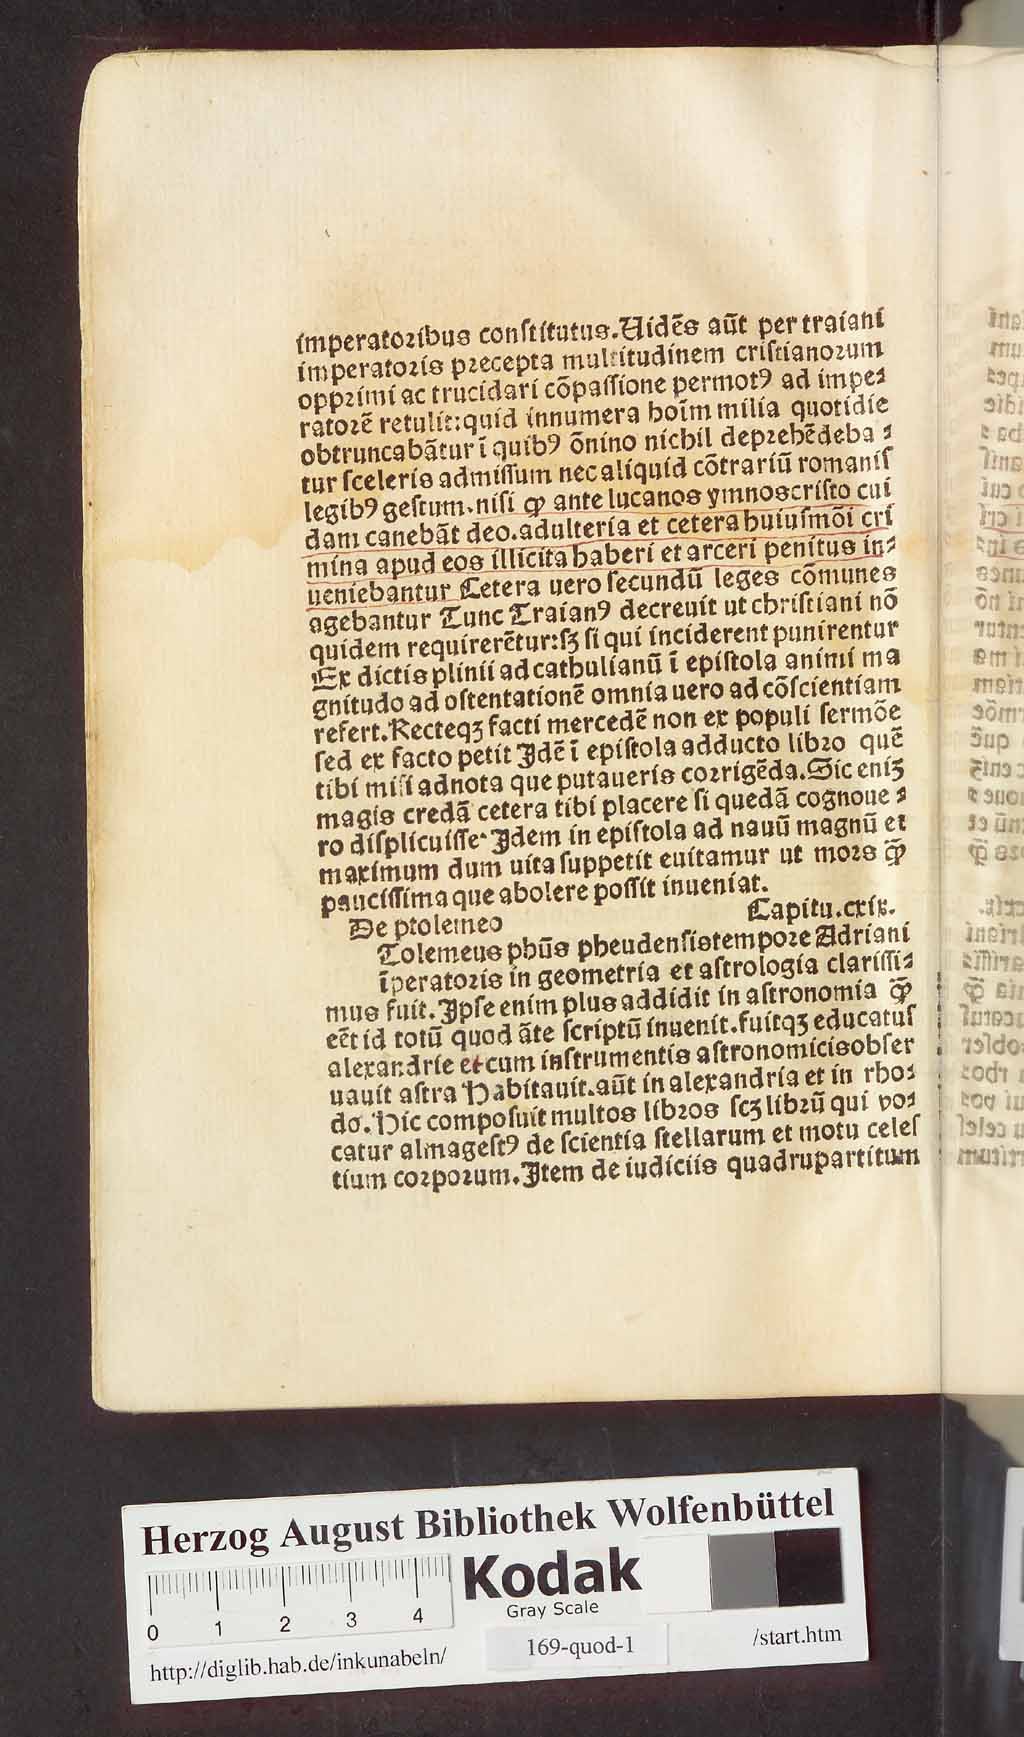 imperatoribus constitutus. Uidēs aūt per traiani
imperatoris precepta multitudinem cristianorum
opprimi ac trucidari cōpassione permotꝰ ad impe⸗
ratorē retulit: quid innumera hoīm milia quotidie
obtruncabātur ī quibꝰ ōnino nichil deprehēdeba⸗
tur sceleris admissum nec aliquid cōtrariū romanis
legibꝰ gestum. nisi ꝙ ante lucanos ymnos cristo cui
dam canebāt deo. adulteria et cetera huiusmōi cri
mina apud eos illicita haberi et arceri penitus in⸗
ueniebantur Cetera uero secundū leges cōmunes
agebantur Tunc Traianꝰ decreuit ut christiani nō
quidem requirerētur: sꝫ si qui inciderent punirentur
Ex dictis plinii ad cathulianū ī epistola animi ma
gnitudo ad ostentationē omnia uero ad cōscientiam
refert. Recteqꝫ facti mercedē non ex populi sermōe
sed ex facto petit Idē ī epistola adducto libro quē
tibi misi adnota que putaueris corrigēda. Sic eniꝫ
magis credā cetera tibi placere si quedā cognoue⸗
ro displicuisse. Idem in epistola ad nauū magnū et
maximum dum uita suppetit euitamur ut mors ꝙ̄
paucissima que abolere possit inueniat.
De ptolemeo Capitu. cxix.
Tolemeus phūs pheudensis tempore Adriani
īperatoris in geometria et astrologia clarissi⸗
mus fuit. Ipse enim plus addidit in astronomia ꝙ̄
eēt id totū quod āte scriptū inuenit. fuitqꝫ educatus
alexandrie et cum instrumentis astronomicis obser
uauit astra Habitauit. aūt in alexandria et in rho⸗
do. Hic composuit multos libros scꝫ librū qui vo⸗
catur almagestꝰ de scientia stellarum et motu celes
tium corporum. Item de iudiciis quadrupartitum
Herzog August Bibliothek Wolfenbüttel
Kodak
Gray Scale
0 1 2 3 4
169-quod-1
http://diglib.hab.de/inkunabeln/
/start.htm